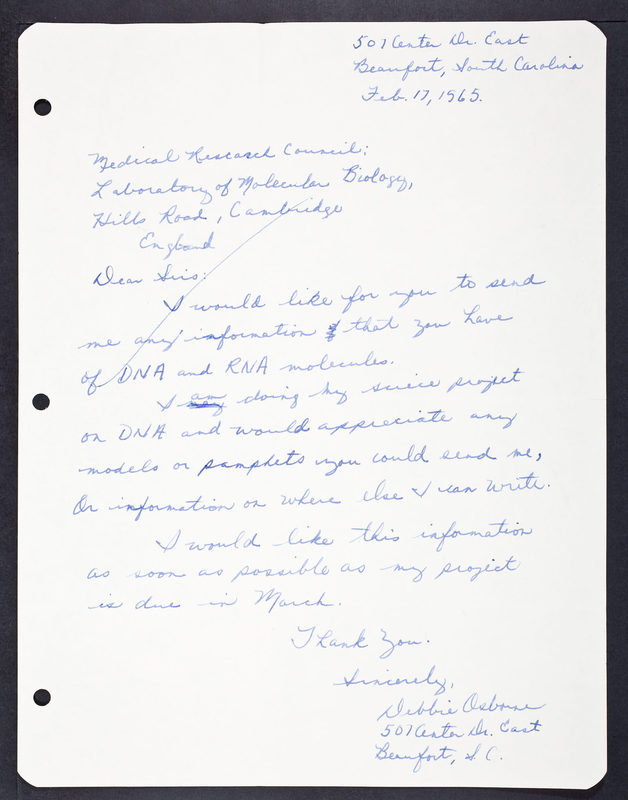 507 Center Dr. East
Beaufort, South Carolina
Feb. 17, 1965.
Medical Research Council:
Laboratory of Molecular Biology,
Hills Road, Cambridge
England
Dear Sirs:
I would like for you to send
me any information that you have
of DNA and RNA molecules.
I am doing my sciece project
on DNA and would appreciate any
models or pamphets you could send me,
Or information on where else I can write.
I would like this information
as soon as possible as my project
is due in March.
Thank You.
Sincerely,
Debbie Osborne
507 Center Dr. East
Beaufort, S.C.